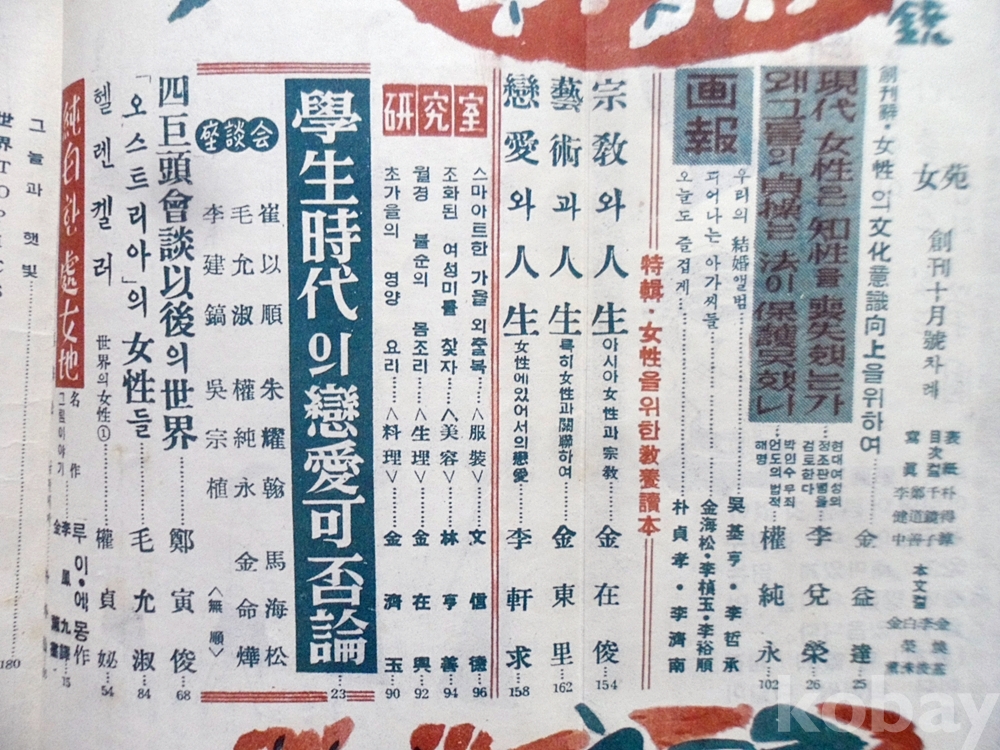 女苑 創刊十月號차례
創刊辭・女性의文化意識向上을위하여 金益達 25
現代女性은知性을喪失했는가
현대여성의 정조관념을 검토한다 李兌榮 26
왜그들의貞操는法이保護못했나
박인수무죄 언도의법적 해명 權純永 102
画報
우리의 結婚앨범 吳基亨・李哲承
피어나는아가씨들 金海松・李楨玉・李裕順
오늘도 즐겁게 朴貞孝・李濟南
特輯・女性을위한敎養讀本
宗敎와人生 아시아女性과宗敎 金在俊 154
藝術과人生 특히女性과關聯하여 金東里 162
戀愛와人生 女性에있어서의戀愛 李軒求 158
研究室
스마아트한 가을 외출복 <服裝> 文信德 96
조화된 여성미를 찾자 <美容> 林亨善 94
월경 불순의 몸조리 <生理> 金在興 92
초가을의 영양 요리 <料理> 金濟玉 90
學生時代의戀愛可否論 23
座談会
崔以順 朱耀翰 馬海松
毛允淑 權純永 金命燁
李建鎬 吳宗植 <無順>
四巨頭會談以後의世界 鄭寅俊 68
「오스트리아」의女性들 毛允淑 84
헬렌켈러 世界의女性① 權貞姙 54
純白한處女地
名作 그림이야기
루이・에몽作
李鳳九譯
15
그늘과 햇빛
世界TOPICS
180
kobay